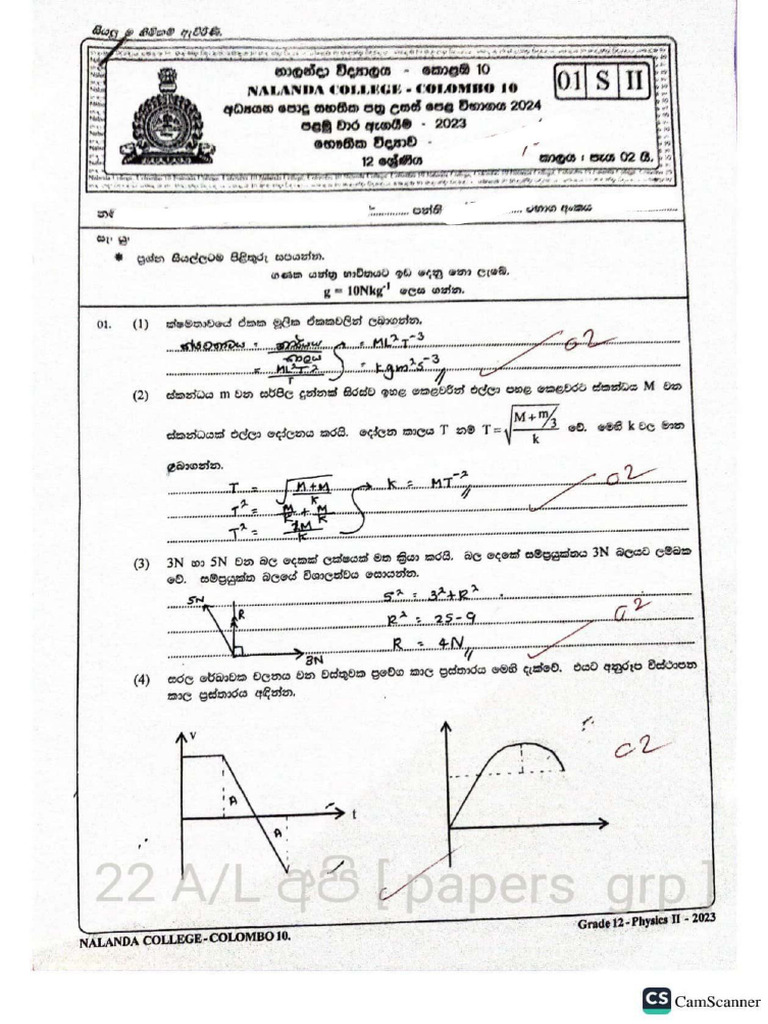 සියලු ම හිමිකම් ඇවිරිණි.
නාලන්දා විද්‍යාලය - කොළඹ 10
NALANDA COLLEGE - COLOMBO 10
01 S II
අධ්‍යයන පොදු සහතික පත්‍ර උසස් පෙළ විභාගය 2024
පළමු වාර ඇගයීම - 2023
භෞතික විද්‍යාව -
12 ශ්‍රේණිය
කාලය : පැය 02 යි.
පන්ති
* ප්‍රශ්න සියල්ලටම පිළිතුරු සපයන්න.
ගණක යන්ත්‍ර භාවිතයට ඉඩ දෙනු නො ලැබේ.
g = 10Nkg⁻¹ ලෙස ගන්න.
01. (1) ක්ෂමතාවයේ ඒකක මූලික ඒකකවලින් ලබාගන්න.
ක්ෂමතාවය = කාර්යය / කාලය = ML²T⁻³
= ML²T⁻² / T = kgm²s⁻³
02
(2) ස්කන්ධය m වන සර්පිල දුන්නක් සිරස්ව ඉහළ කෙළවරින් එල්ලා පහළ කෙළවරට ස්කන්ධය M වන
ස්කන්ධයක් එල්ලා දෝලනය කරයි. දෝලන කාලය T නම් T = √((M + m/3) / k) වේ. මෙහි k වල මාන
ලබාගන්න.
T = √((M+M) / K) → k = MT⁻²
T² = M/K + M/K
T² = 2M / K
02
(3) 3N හා 5N වන බල දෙකක් ලක්ෂයක් මත ක්‍රියා කරයි. බල දෙකේ සම්ප්‍රයුක්තය 3N බලයට ලම්බක
වේ. සම්ප්‍රයුක්ත බලයේ විශාලත්වය සොයන්න.
5N
R
3N
5² = 3² + R²
R² = 25 - 9
R = 4N
02
(4) සරල රේඛාවක චලනය වන වස්තුවක ප්‍රවේග කාල ප්‍රස්තාරය මෙහි දැක්වේ. එයට අනුරූප විස්ථාපන
කාල ප්‍රස්තාරය අඳින්න.
V
A
A
t
02
22 A/L අපි [ papers grp ]
NALANDA COLLEGE - COLOMBO 10.
Grade 12 - Physics II - 2023
CS CamScanner